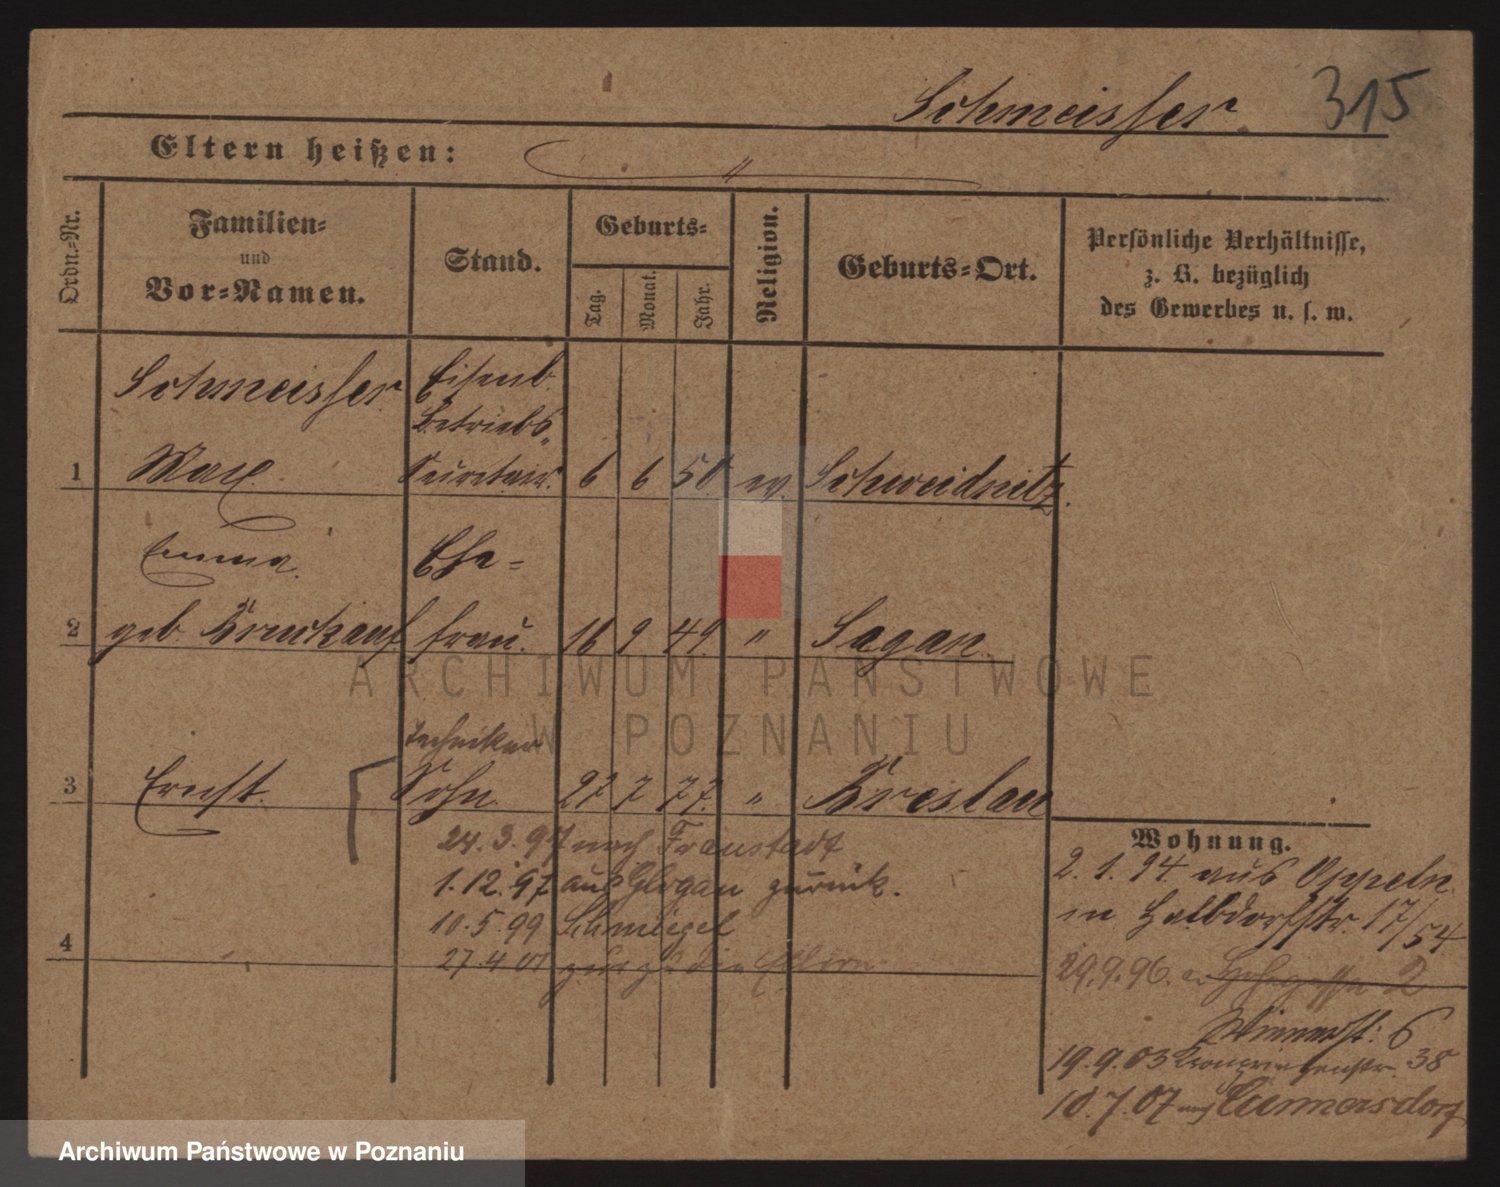 Schmeisser 315
Eltern heißen: "
Ordn.-Nr.
Familien-
und
Vor-Namen.
Stand.
Geburts-
Tag.
Monat.
Jahr.
Religion.
Geburts-Ort.
Persönliche Verhältnisse,
z. B. bezüglich
des Gewerbes u. s. w.
Schmeisser Eisenb.
Betriebs-
1 Max Secretair. 6 6 50 ev. Schweidnitz.
Emma Ehe-
2 geb. frau. 16 9 49 " Sagan.
Techniker
3 Ernst. Sohn 27 7 77. " Breslau
24.3.97 nach Fraustadt
1.12.97 aus Glogau zurück.
10.5.99 Schmiegel
4 27.4.01 zu den Eltern
Wohnung.
2.1.94 aus Oppeln
in Halbdorfstr. 17/54
29.9.96. 2
Wienerst: 6
19.9.03 Kronprinzenstr. 38
10.7.07
ARCHIWUM PAŃSTWOWE
W POZNANIU
Archiwum Państwowe w Poznaniu